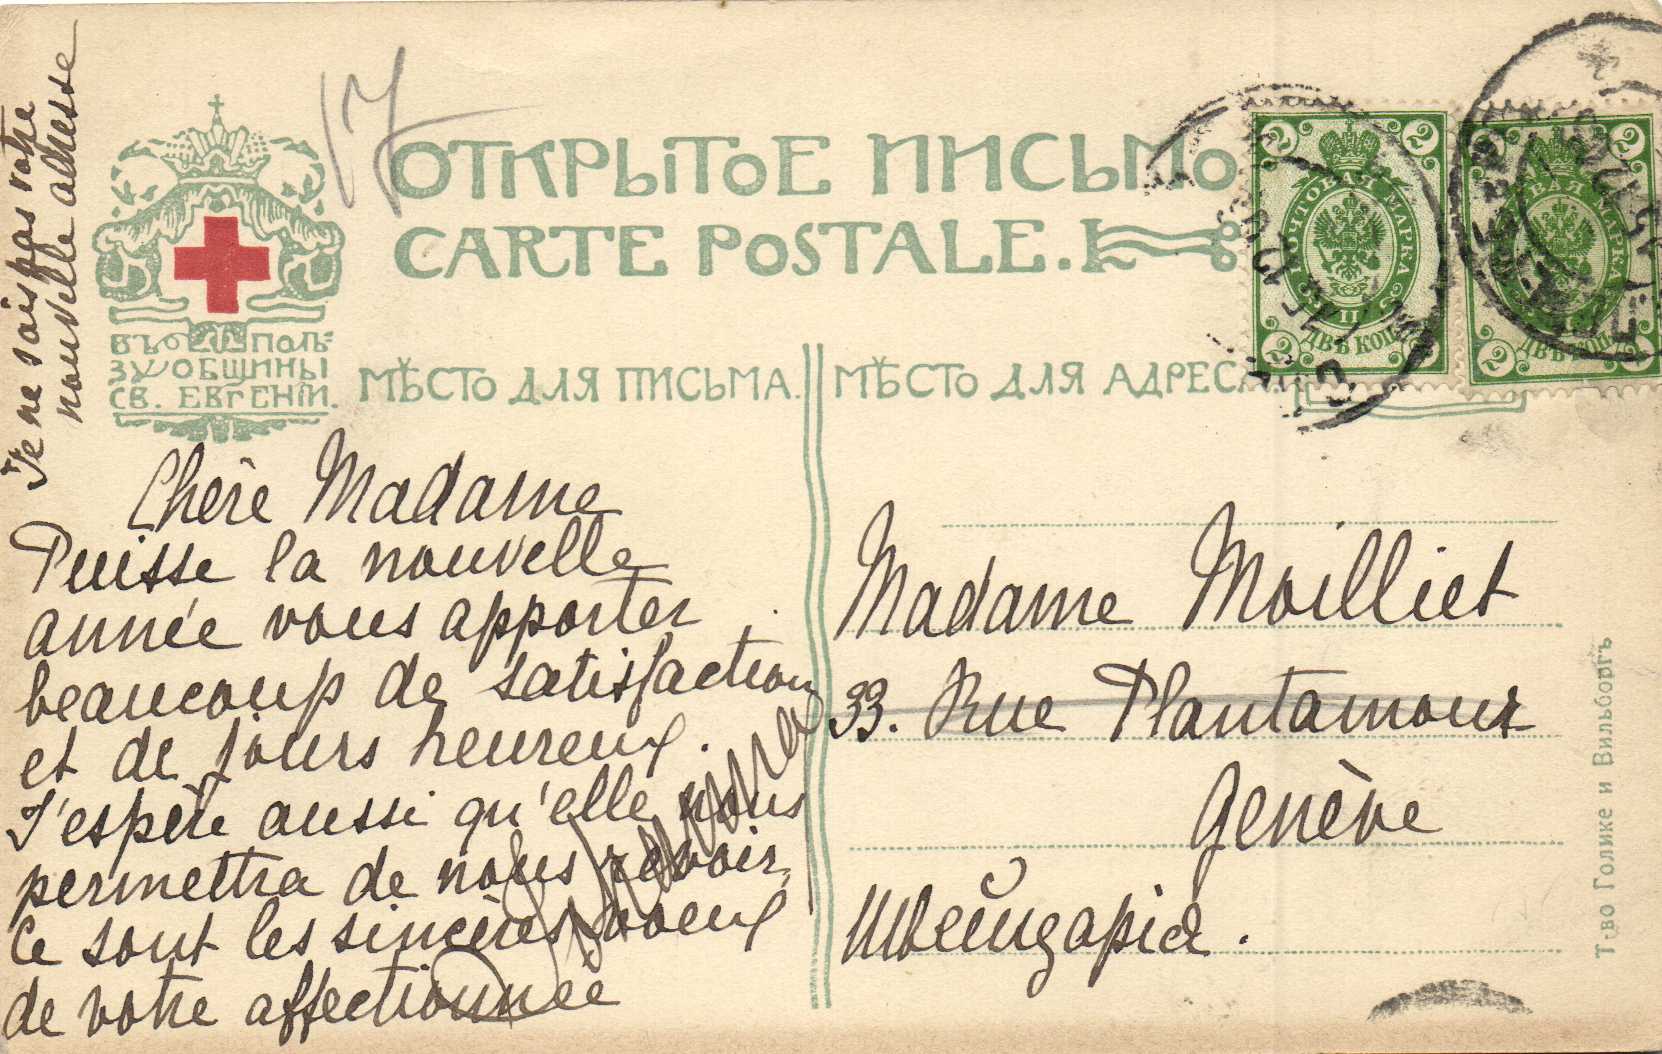 Je ne sais pas votre
nouvelle adresse
17
ОТКРЫТОЕ ПИСЬМО
CARTE POSTALE.
ВЪ ПОЛЬ-
ЗУ ОБЩИНЫ
СВ. ЕВГЕНІИ.
МѢСТО ДЛЯ ПИСЬМА.
Chère Madame
Puisse la nouvelle
année vous apporter
beaucoup de satisfaction
et de jours heureux.
J'espère aussi qu'elle nous
permettra de nous revoir.
Ce sont les sincères voeux
de votre affectionnée
МѢСТО ДЛЯ АДРЕСА.
2 2
ПОЧТОВАЯ МАРКА
ДВѢ КОП
2 2
2 2
ВАЯ МАРКА
ДВѢ КОП
2 2
Madame Moilliet
33. Rue Plantamour
Genève
Швейцарія.
Т-во Голике и Вильборгъ